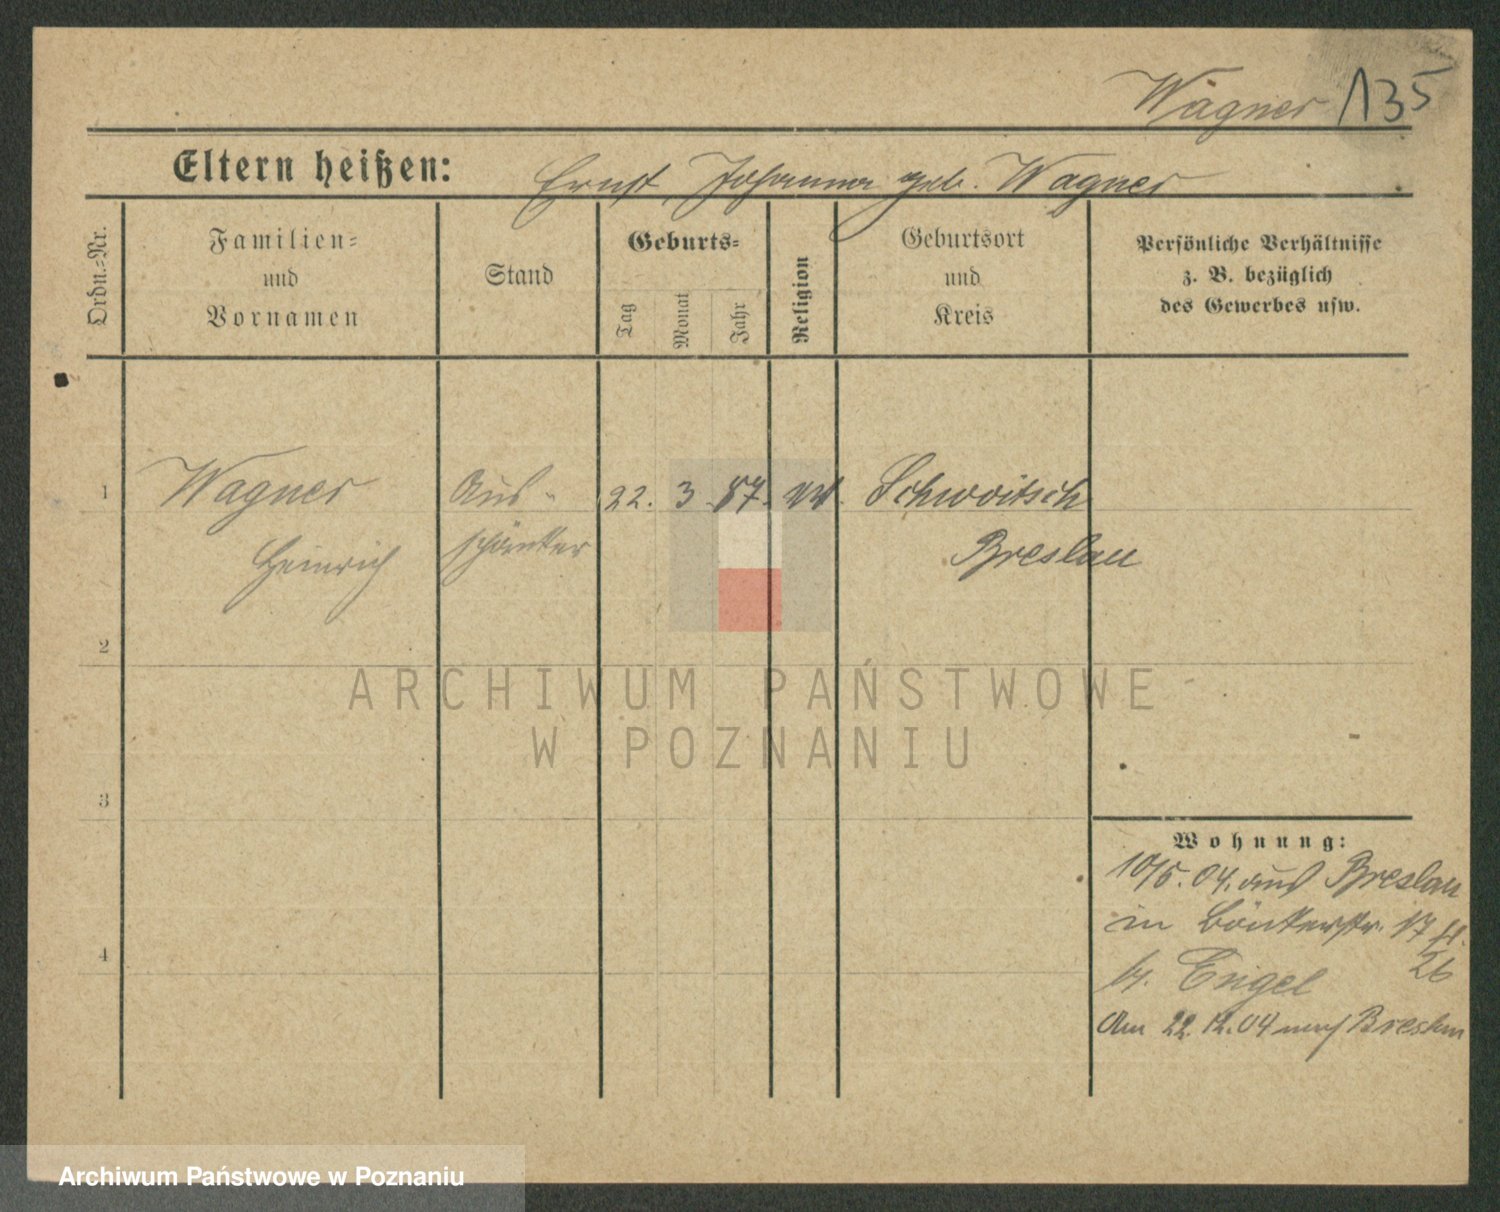 Wagner 135
Eltern heißen: Ernst, Johanna geb. Wagner
Ordn.=Nr.
Familien=
und
Vornamen
Stand
Geburts=
Tag
Monat
Jahr
Religion
Geburtsort
und
Kreis
Persönliche Verhältnisse
z. B. bezüglich
des Gewerbes usw.
1 Wagner Aus- 22. 3. 87. Schwoitsch
Heinrich schänker Breslau
2
3
4
Wohnung:
10/5. 04. aus Breslau
in 17
26
b. Engel
Am 22. 12. 04 nach Breslau
ARCHIWUM PAŃSTWOWE
W POZNANIU
Archiwum Państwowe w Poznaniu